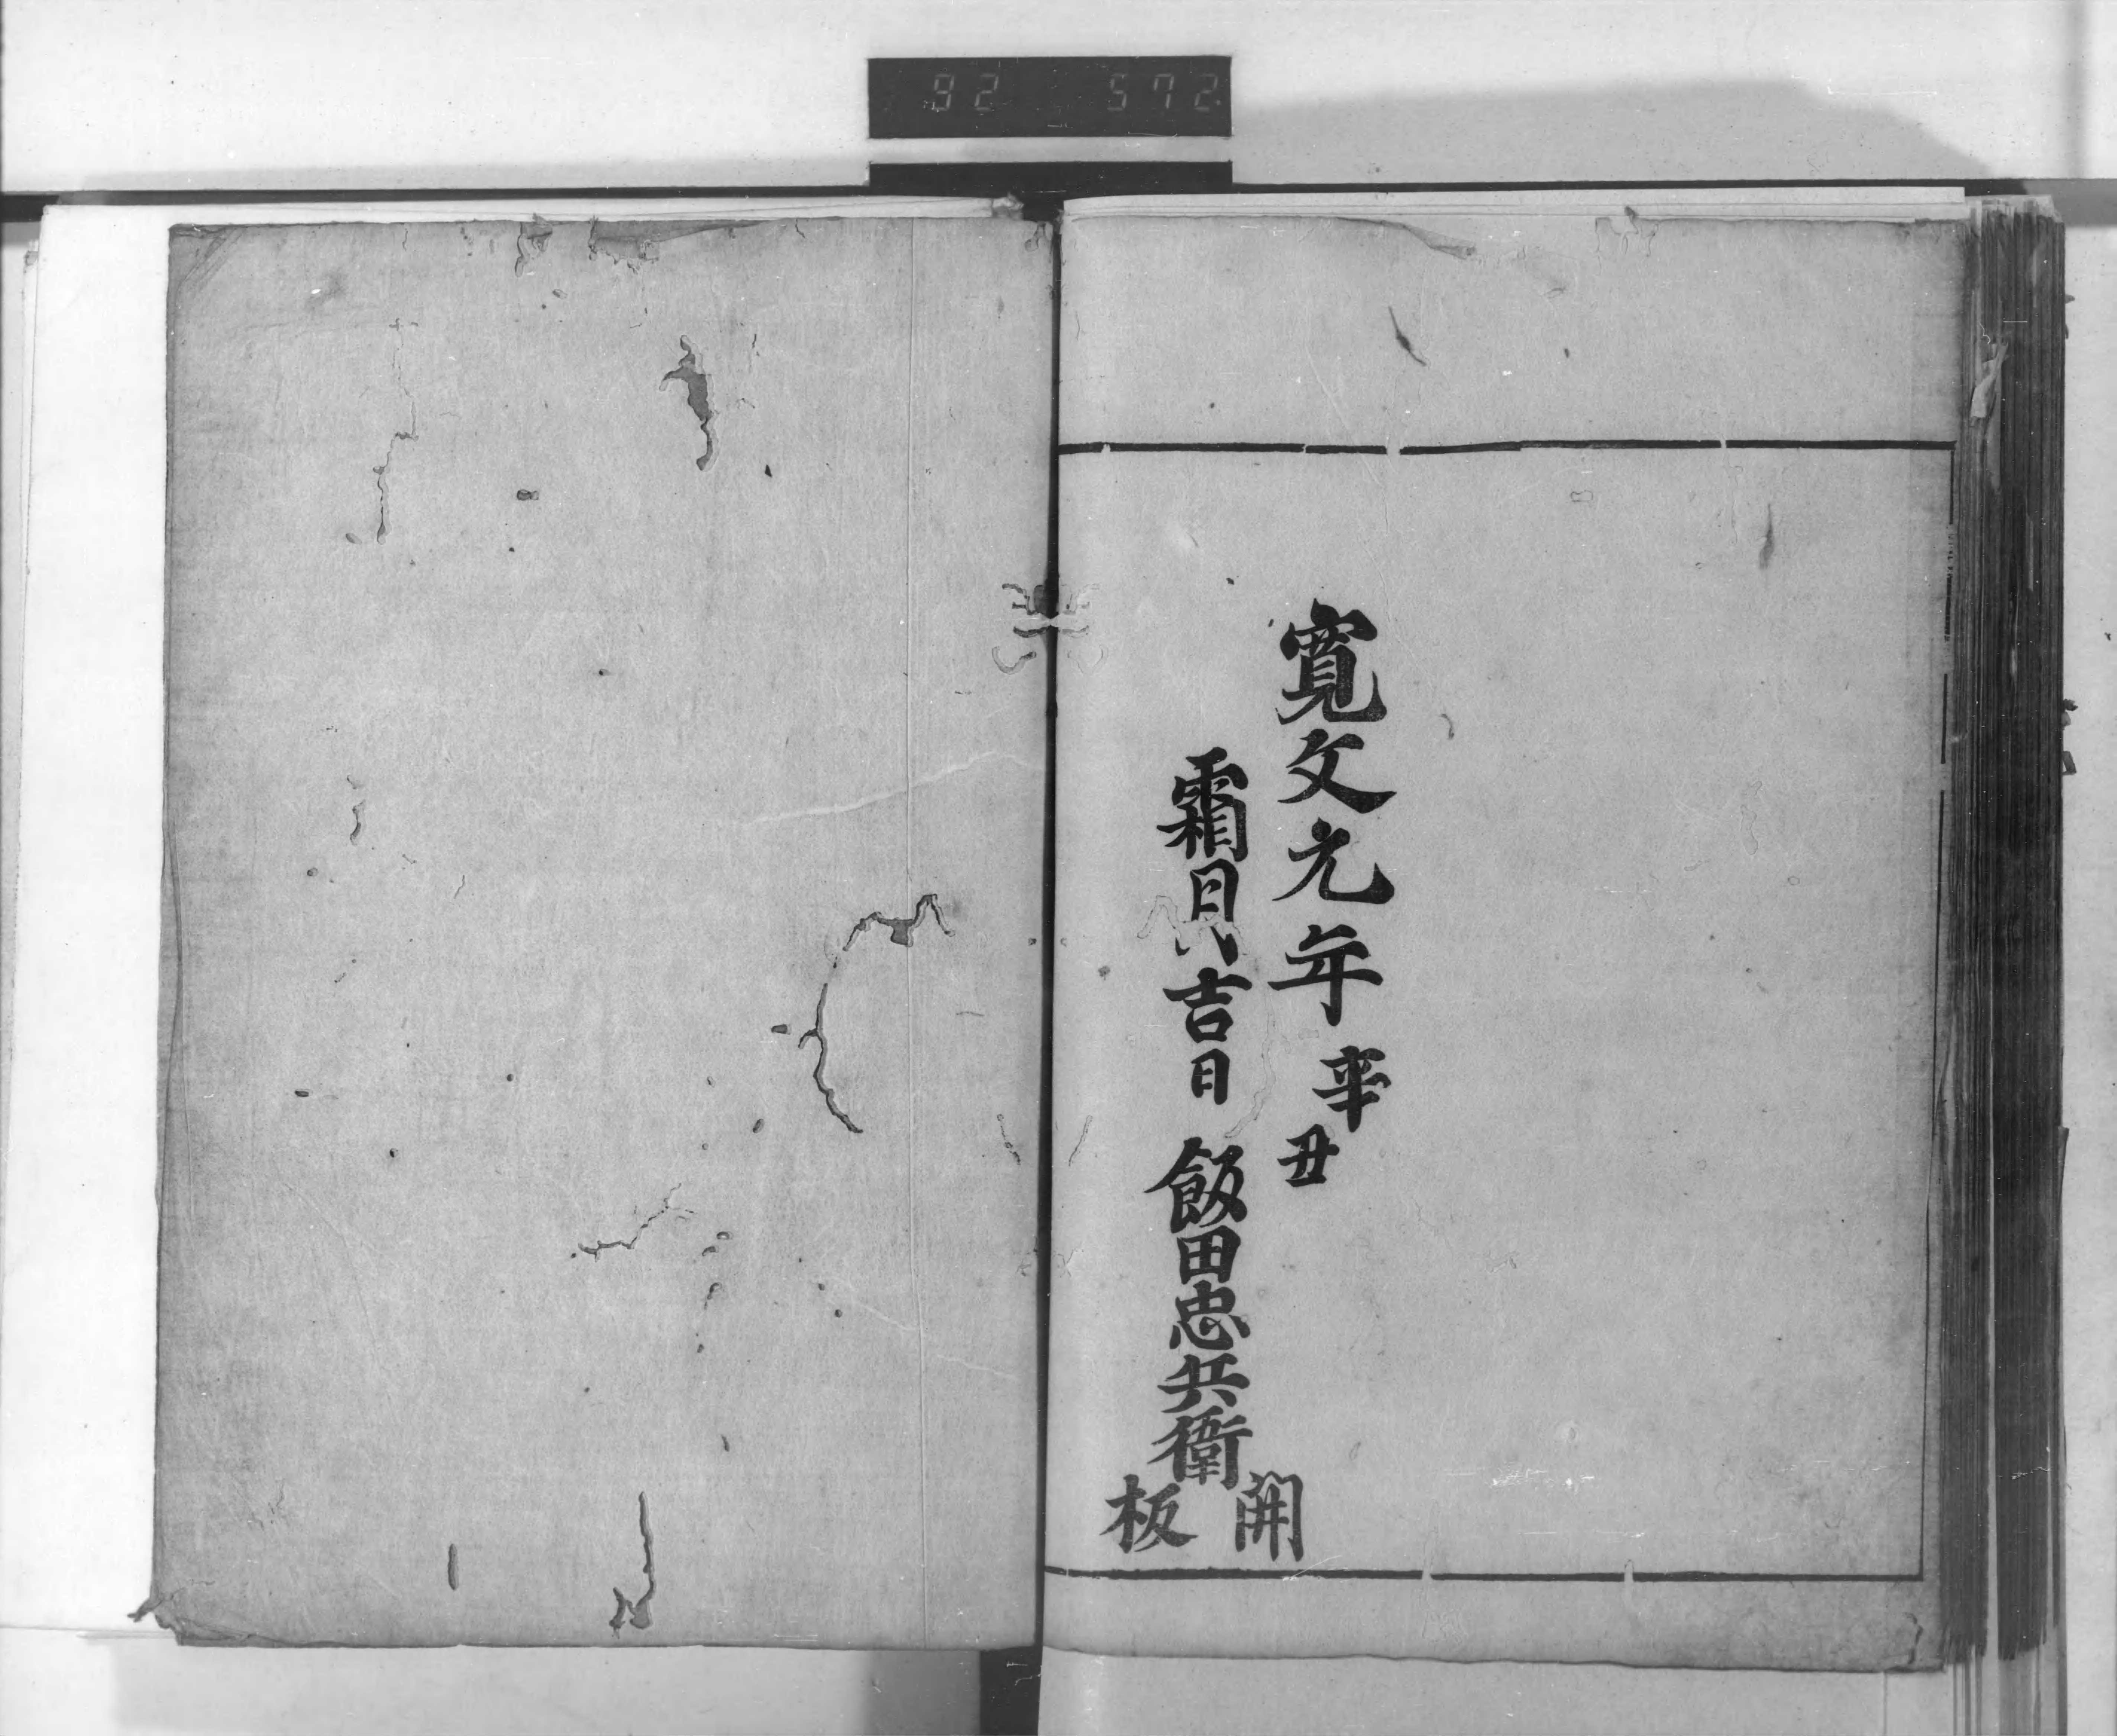 92 572
寛文元年辛丑
霜月吉日 飯田忠兵衛開板